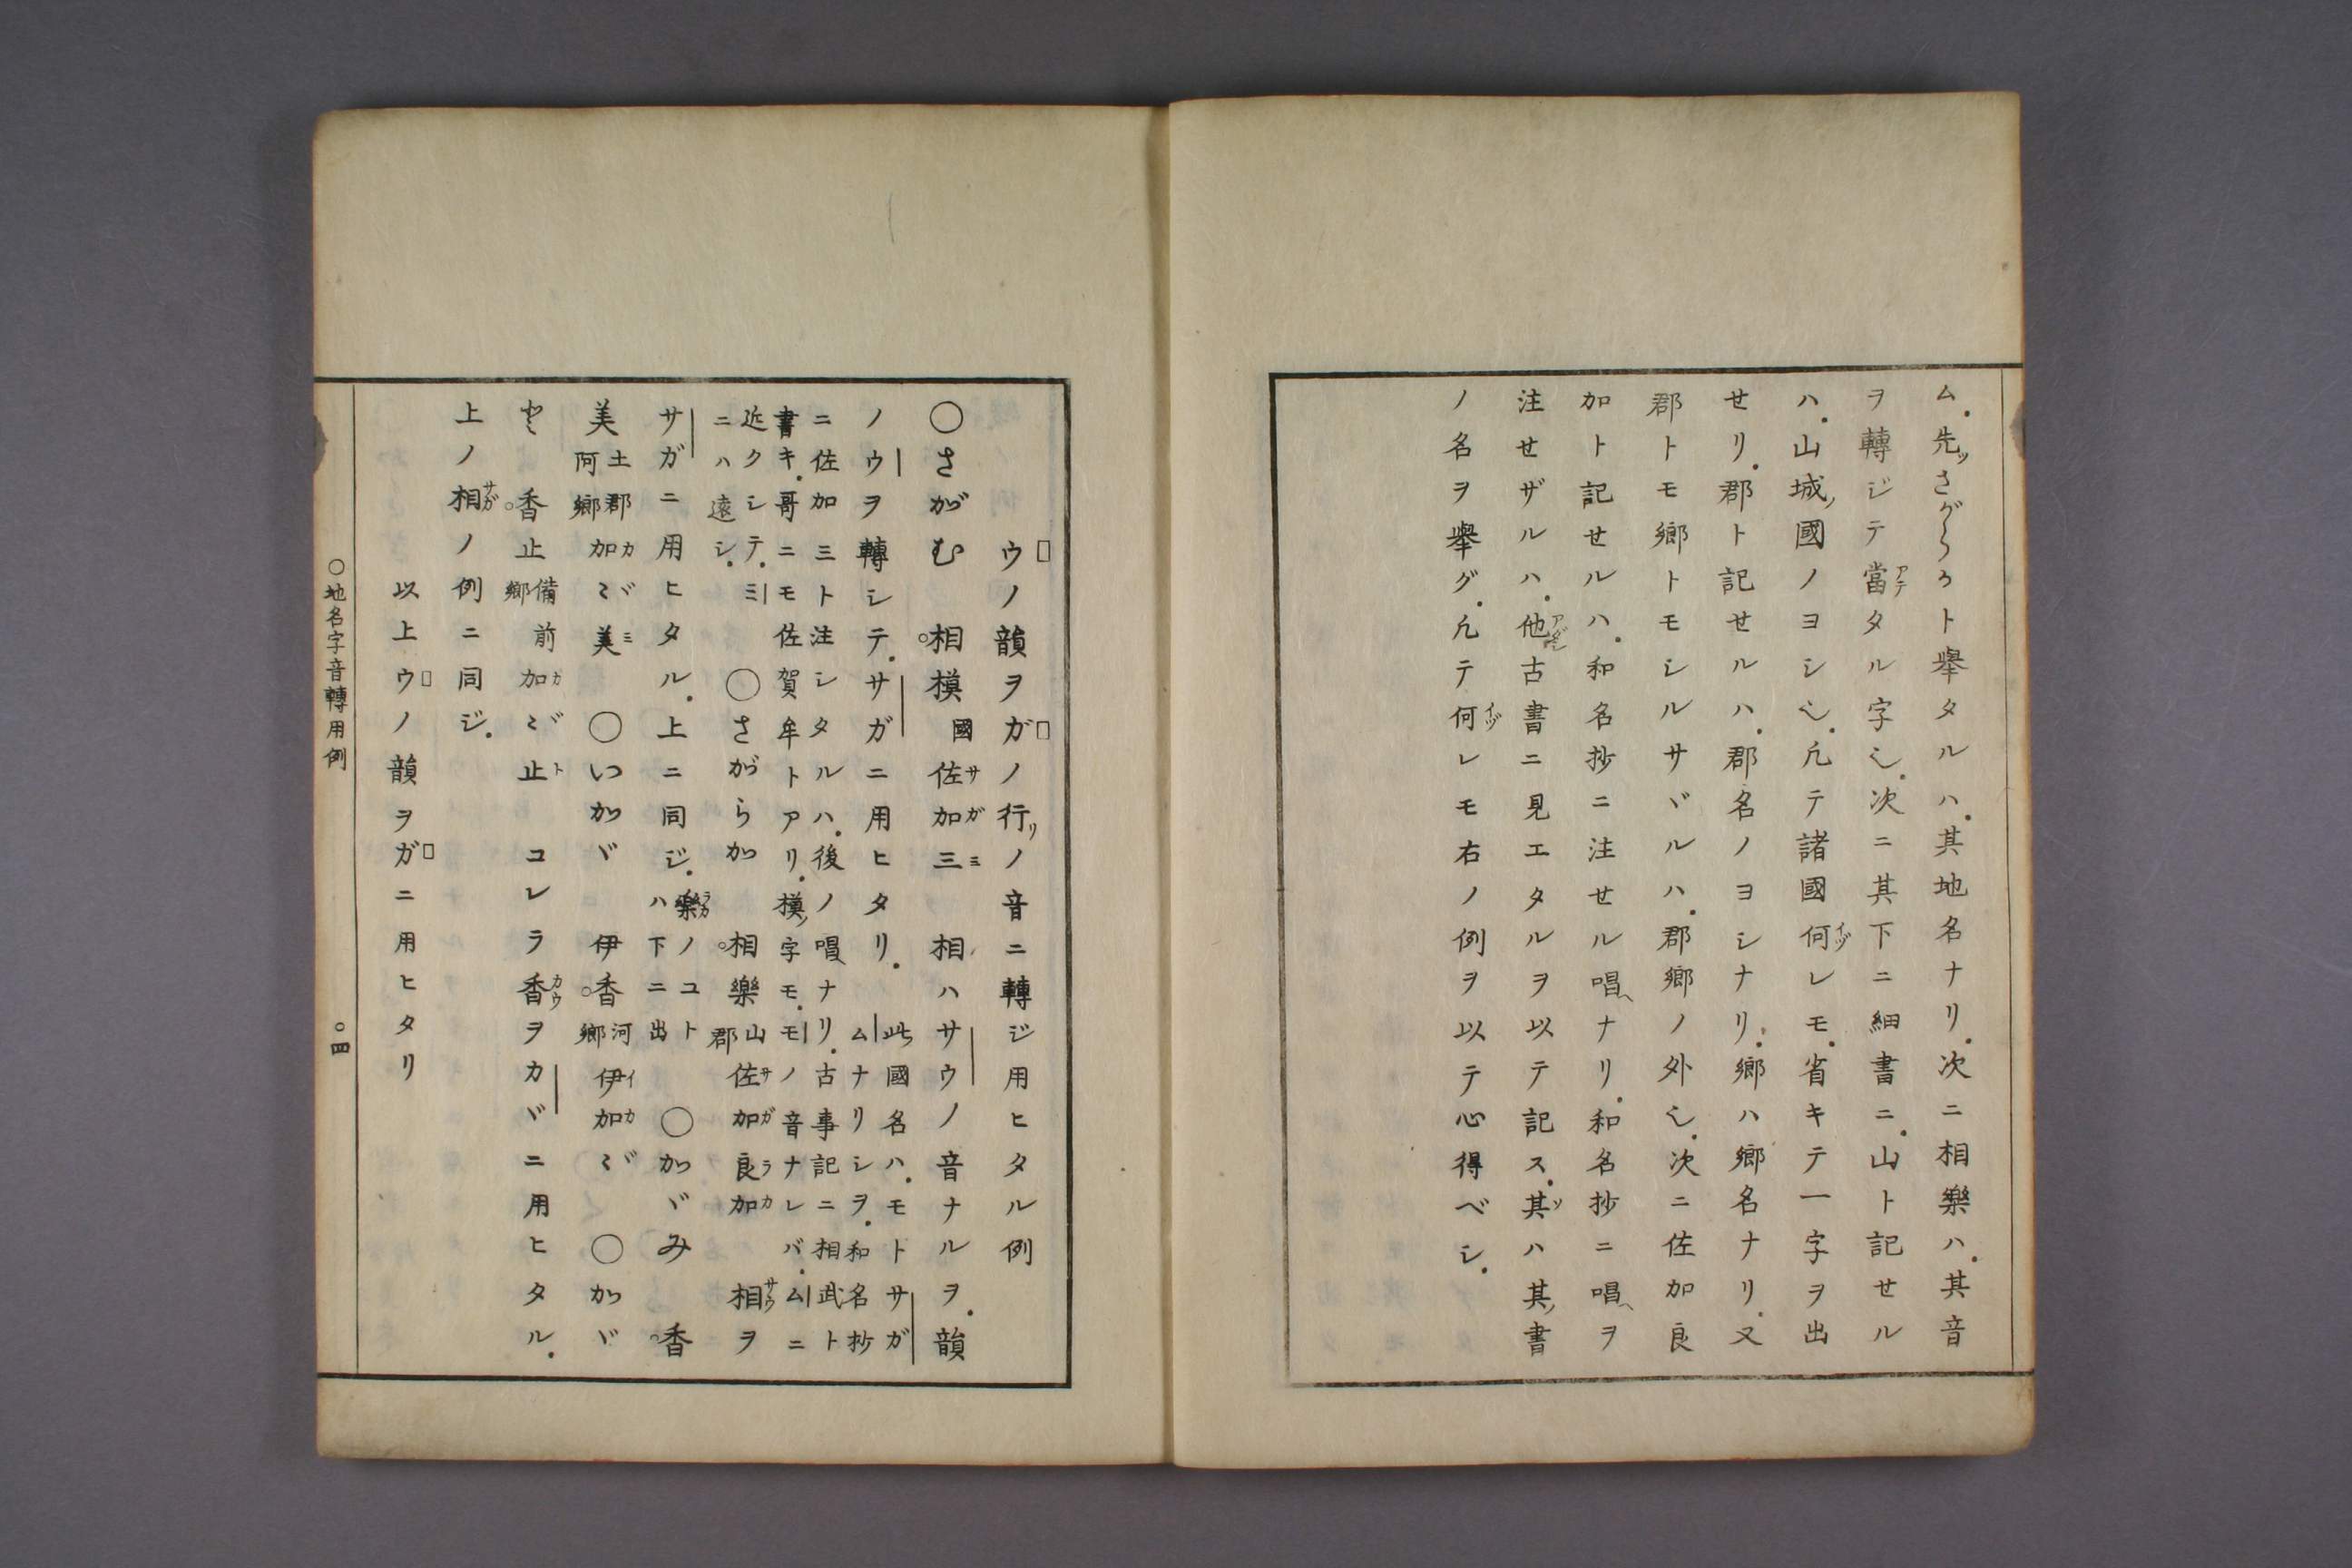 ム先ツさがらかト擧タルハ其地名ナリ次ニ相樂ハ其音
ヲ轉ジテ當アテタル字也次ニ其下ニ細書ニ山ト記せル
ハ山城ノ國ノヨシ也凡テ諸國何イヅレモ省キテ一字ヲ出
せリ郡ト記せルハ郡名ノヨシナリ鄕ハ鄕名ナリ又
郡トモ鄕トモシルサヾルハ郡鄕ノ外也次ニ佐加良
加ト記せルハ和名抄ニ注せル唱ヘナリ和名抄ニ唱ヘヲ
注せザルハ他アダシ古書ニ見エタルヲ以テ記ス其ソハ其ノ書
ノ名ヲ擧グ凡テ何イヅレモ右ノ例ヲ以テ心得ベシ
ウノ韻ヲガノ行リノ音ニ轉ジ用ヒタル例
〇さがむ 相模國佐サ加ガ三ミ 相ハサウノ音ナルヲ韻
ノウヲ轉シテサガニ用ヒタリ 此國名ハモトサガ
ムナリシヲ和名抄
ニ佐加三ト注シタルハ後ノ唱ナリ古事記ニ相武ト
書キ哥ニモ佐賀牟トアリ模ノ字モモノ音ナレバムニ
近クシテミ
ニハ遠シ
〇さがらか 相樂山郡佐サ加ガ良ラ加カ 相サウヲ
サガニ用ヒタル上ニ同ジ樂ラカノコト
ハ下ニ出 〇かゞみ 香
美土郡
阿鄕加カ〻ヾ美ミ 〇いかゞ 伊香河鄕伊イ加カ〻ヾ 〇かゞ
と 香止備前
鄕加カ〻ヾ止ト コレラ香カウヲカヾニ用ヒタル
上ノ相サガノ例ニ同ジ
以上ウノ韻ヲガニ用ヒタリ
〇地名字音轉用例 〇四